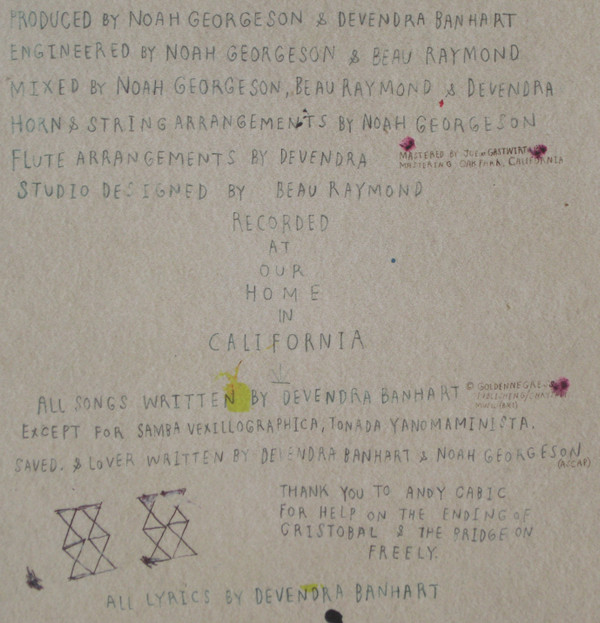 PRODUCED BY NOAH GEORGESON & DEVENDRA BANHART
ENGINEERED BY NOAH GEORGESON & BEAU RAYMOND
MIXED BY NOAH GEORGESON, BEAU RAYMOND & DEVENDRA
HORN & STRING ARRANGEMENTS BY NOAH GEORGESON
FLUTE ARRANGEMENTS BY DEVENDRA
MASTERED BY JOE GASTWIRT
MASTERING OAK PARK, CALIFORNIA
STUDIO DESIGNED BY BEAU RAYMOND
RECORDED
AT
OUR
HOME
IN
CALIFORNIA
ALL SONGS WRITTEN BY DEVENDRA BANHART
© GOLDENNEGRE
EXCEPT FOR SAMBA VEXILLOGRAPHICA, TONADA YANOMAMINISTA.
SAVED. & LOVER WRITTEN BY DEVENDRA BANHART & NOAH GEORGESON
(ASCAP)
THANK YOU TO ANDY CABIC
FOR HELP ON THE ENDING OF
CRISTOBAL & THE BRIDGE ON
FREELY.
ALL LYRICS BY DEVENDRA BANHART